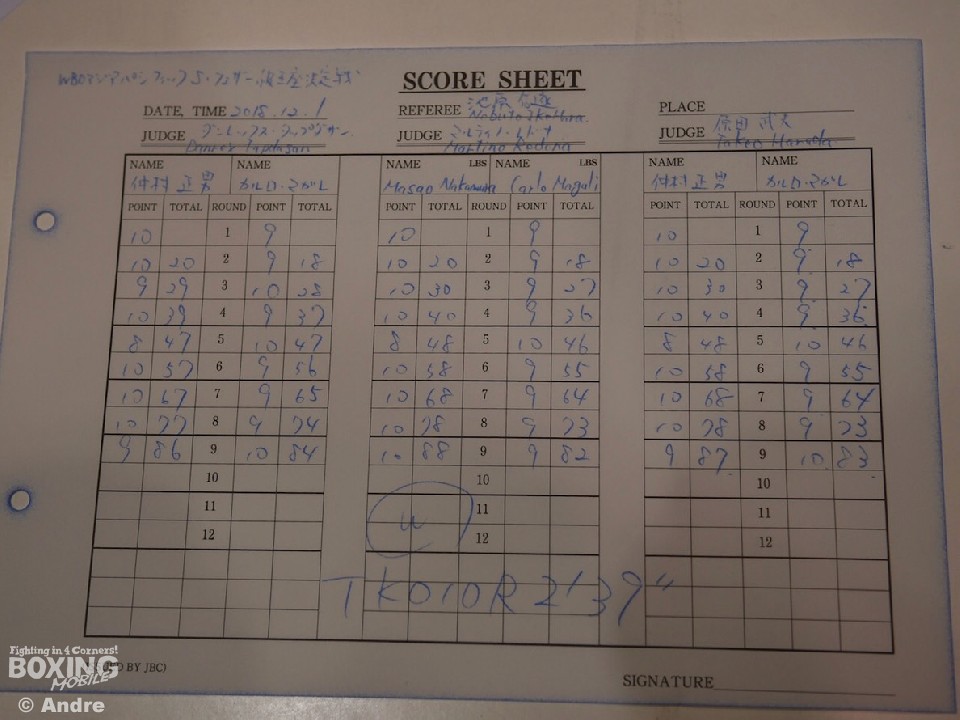 SCORE SHEET
DATE, TIME 2018.12.1
REFEREE 池原信遂
Nobuto Ikehara.
PLACE
JUDGE
JUDGE
JUDGE 原田武夫
Takeo Harada
NAME NAME NAME LBS NAME LBS NAME NAME
仲村 正男 カルロ・マガリ Masao Nakamura Carlo Magali 仲村 正男 カルロ・マガレ
POINT TOTAL ROUND POINT TOTAL POINT TOTAL ROUND POINT TOTAL POINT TOTAL ROUND POINT TOTAL
10 1 9 10 1 9 10 1 9
10 20 2 9 18 10 20 2 9 18 10 20 2 9 18
9 29 3 10 28 10 30 3 9 27 10 30 3 9 27
10 39 4 9 37 10 40 4 9 36 10 40 4 9 36
8 47 5 10 47 8 48 5 10 46 8 48 5 10 46
10 57 6 9 56 10 58 6 9 55 10 58 6 9 55
10 67 7 9 65 10 68 7 9 64 10 68 7 9 64
10 77 8 9 74 10 78 8 9 73 10 78 8 9 73
9 86 9 10 84 10 88 9 9 82 9 87 9 10 83
10 10 10
11 11 11
12 W 12 12
TKO10R 2'39"
BY JBC)
SIGNATURE
Fighting in 4 Corners!
BOXING
MOBILE
© Andre